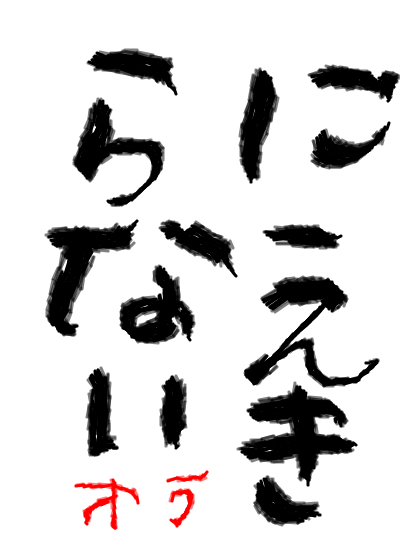 にえき
らない
オラ